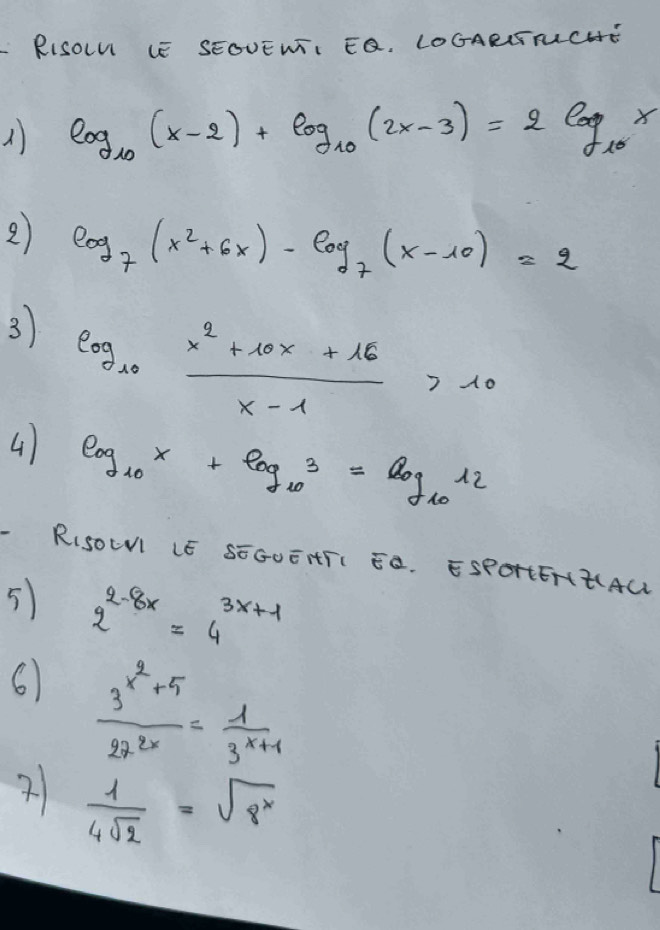 - RISOLVI LE SEGUENTI EQ. LOGARITMICHE
1) log₁₀ (x-2) + log₁₀ (2x-3) = 2 log₁₀ x
2) log₇ (x²+6x) - log₇ (x-10) = 2
3) log₁₀ (x²+10x+16)/(x-1) > 10
4) log₁₀ x + log₁₀ 3 = log₁₀ 12
- RISOLVI LE SEGUENTI EQ. ESPONENZIALI
5) 2^(2-8x) = 4^(3x+1)
6) 3^(x²+5)/27^(2x) = 1/3^(x+1)
7) 1/(4√2) = √(8^x)